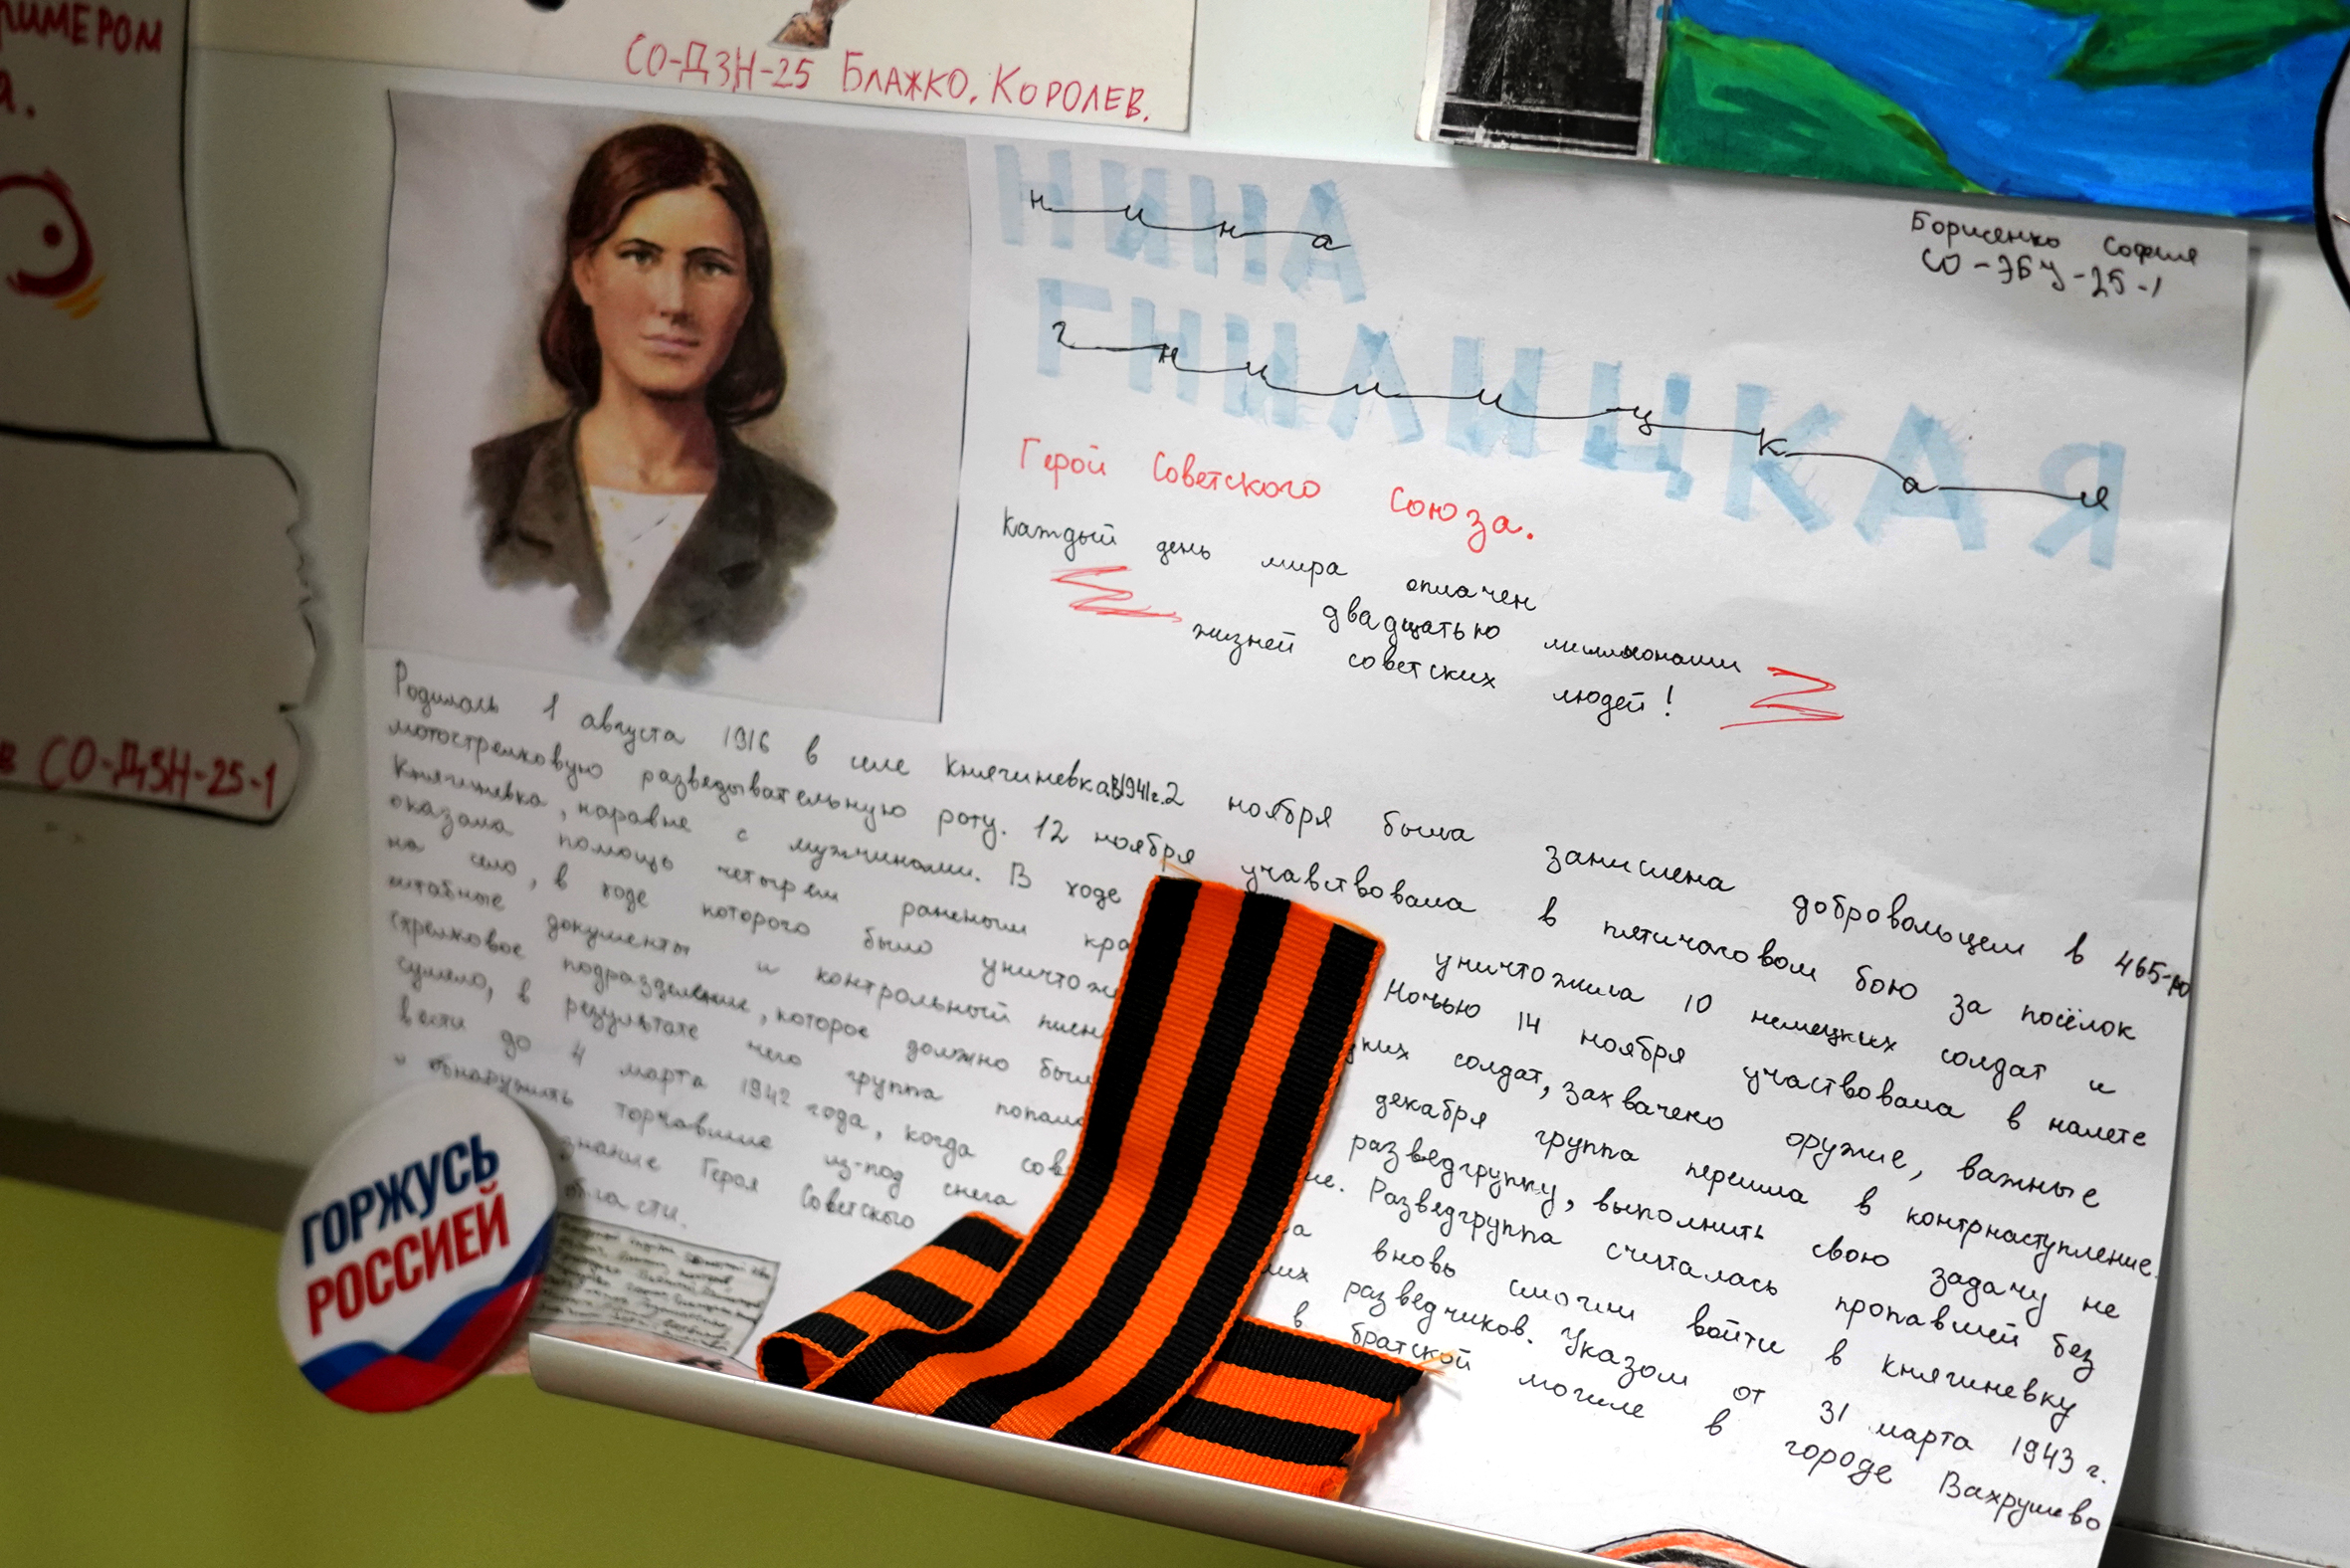 ПРИМЕРОМ
а.
СО-ДЗН-25 БЛАЖКО. КОРОЛЕВ.
в СО-ДЗН-25-1
Борисенко София
СО-ЭБУ-25-1
НИНА
нина
ГНИЛИЦКАЯ
гниилицкая
Герой Советского Союза.
Каждый день мира оплачен
двадцатью миллионами
жизней советских людей!
Родилась 1 августа 1916 в селе Княгиневка.В1941г.2 ноября была зачислена добровольцем в 465-ю
мотострелковую разведывательную роту. 12 ноября учавствовала в пятичасовом бою за посёлок
Княгиневка, наравне с мужчинами. В ходе уничтожила 10 немецких солдат и
оказала помощь четырём раненым кра Ночью 14 ноября участвовала в налете
на село, в ходе которого было уничтоже цких солдат, захвачено оружие, важные
штабные документы и контрольный плен декабря группа перешла в контрнаступление.
стрелковое подразделение, которое должно был разведгруппу, выполнить свою задачу не
сумело, в результате чего группа попала ие. Разведгруппа считалась пропавшей без
вести до 4 марта 1942 года, когда сов а вновь смогли войти в Княгиневку
и обнаружить торчавшие из-под снега их разведчиков. Указом от 31 марта 1943 г.
знание Героя Советского в братской могиле в городе Вахрушево
области.
ГОРЖУСЬ
РОССИЕЙ